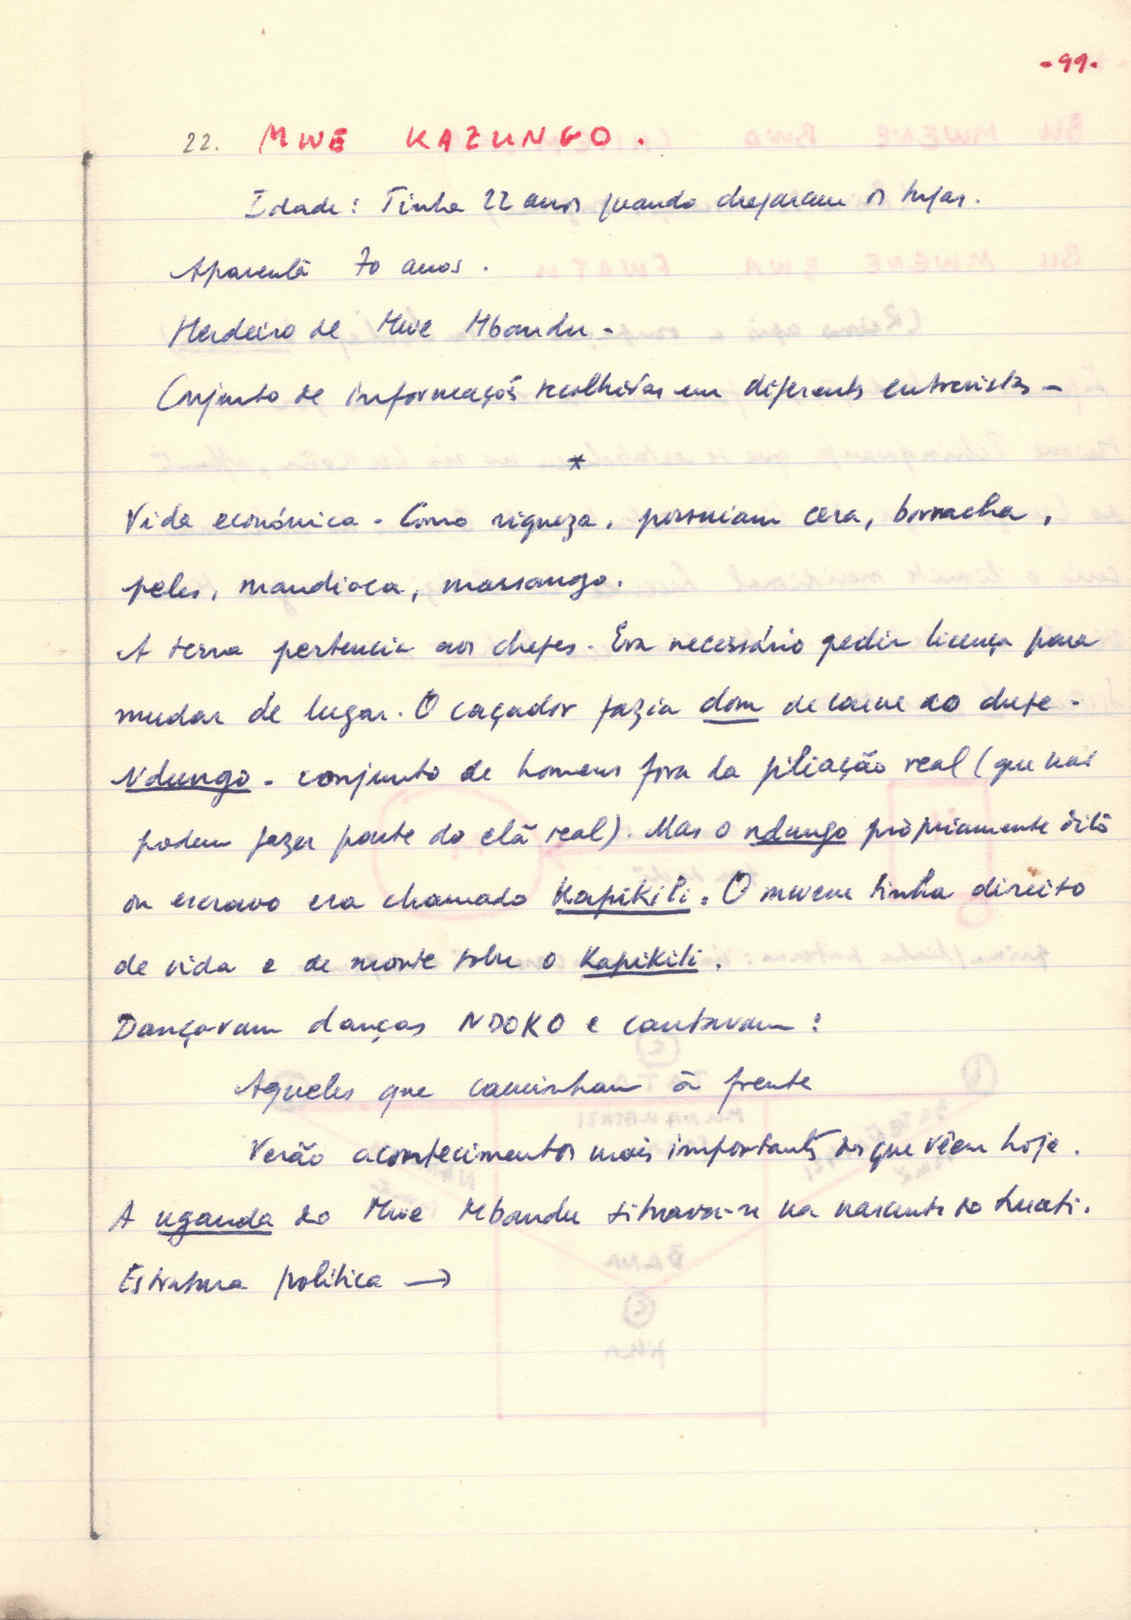 -99-
22. MWE KAZUNGO.
Idade: Tinha 22 anos quando chegaram os tugas.
Aparenta 70 anos.
Herdeiro de Mwe Mbandu -
Conjunto de informações recolhidas em diferentes entrevistas -
*
Vida económica - Como riqueza, possuiam cera, borracha,
peles, mandioca, massango.
A terra pertencia aos chefes - Era necessário pedir licença para
mudar de lugar. O caçador fazia dom de carne ao chefe -
Ndungo - conjunto de homens fora da filiação real (que não
podem fazer parte do clã real). Mas o ndungo pròpriamente dito
ou escravo era chamado Kapikili. O mwene tinha direito
de vida e de morte sobre o Kapikili.
Dançavam danças NDOKO e cantavam:
Aqueles que caminham à frente
Verão acontecimentos mais importantes dos que vêem hoje.
A nganda do Mwe Mbandu situava-se na nascente do Luati.
Estrutura política →